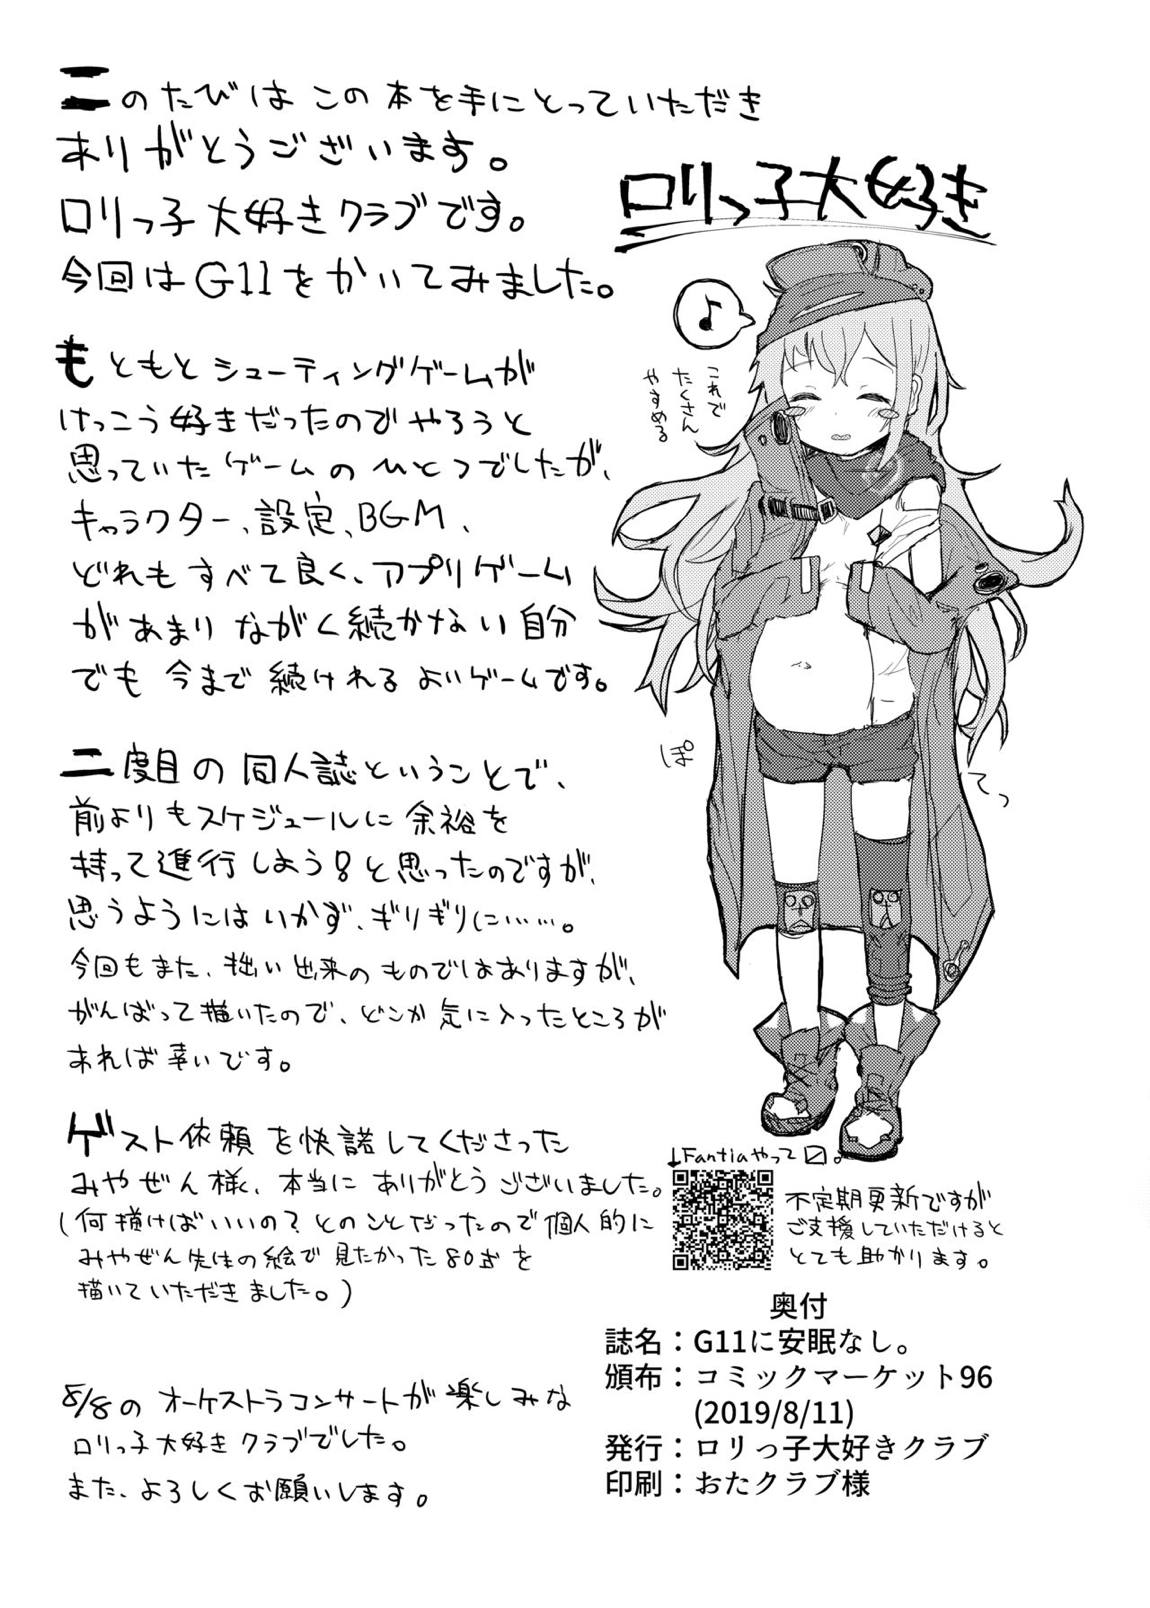 このたびは この 本を手にとっていただき
ありがとうございます。
ロリっ子 大好きクラブです。
今回は G11をかいてみました。
もともと シューティングゲームが
けっこう好きだったのでやろうと
思っていたゲームのひとつでしたが、
キャラクター、設定、BGM、
どれもすべて良く、アプリゲーム
があまり ながく続かない自分
でも 今まで 続けれる よいゲームです。
二度目の 同人誌ということで、
前よりもスケジュールに余裕を
持って進行しよう!と思ったのですが、
思うようにはいかず、ギリギリに……。
今回もまた、拙い出来のものではありますが、
がんばって描いたので、どこか気に入ったところが
あれば幸いです。
ゲスト依頼を快諾してくださった
みやぜん様、本当に ありがとうございました。
(何描けばいいの?とのことだったので個人的に
みやぜん先生の絵で見たかった80式を
描いていただきました。)
8/8の オーケストラコンサートが楽しみな
ロリっ子大好きクラブでした。
また、よろしくお願いします。
ロリっ子大好き
♪
これで
たくさん
やすめる
ぽ
てっ
↓Fantiaやって〼。
不定期更新ですが
ご支援していただけると
とても助かります。
奥付
誌名：G11に安眠なし。
頒布：コミックマーケット96
(2019/8/11)
発行：ロリっ子大好きクラブ
印刷：おたクラブ様